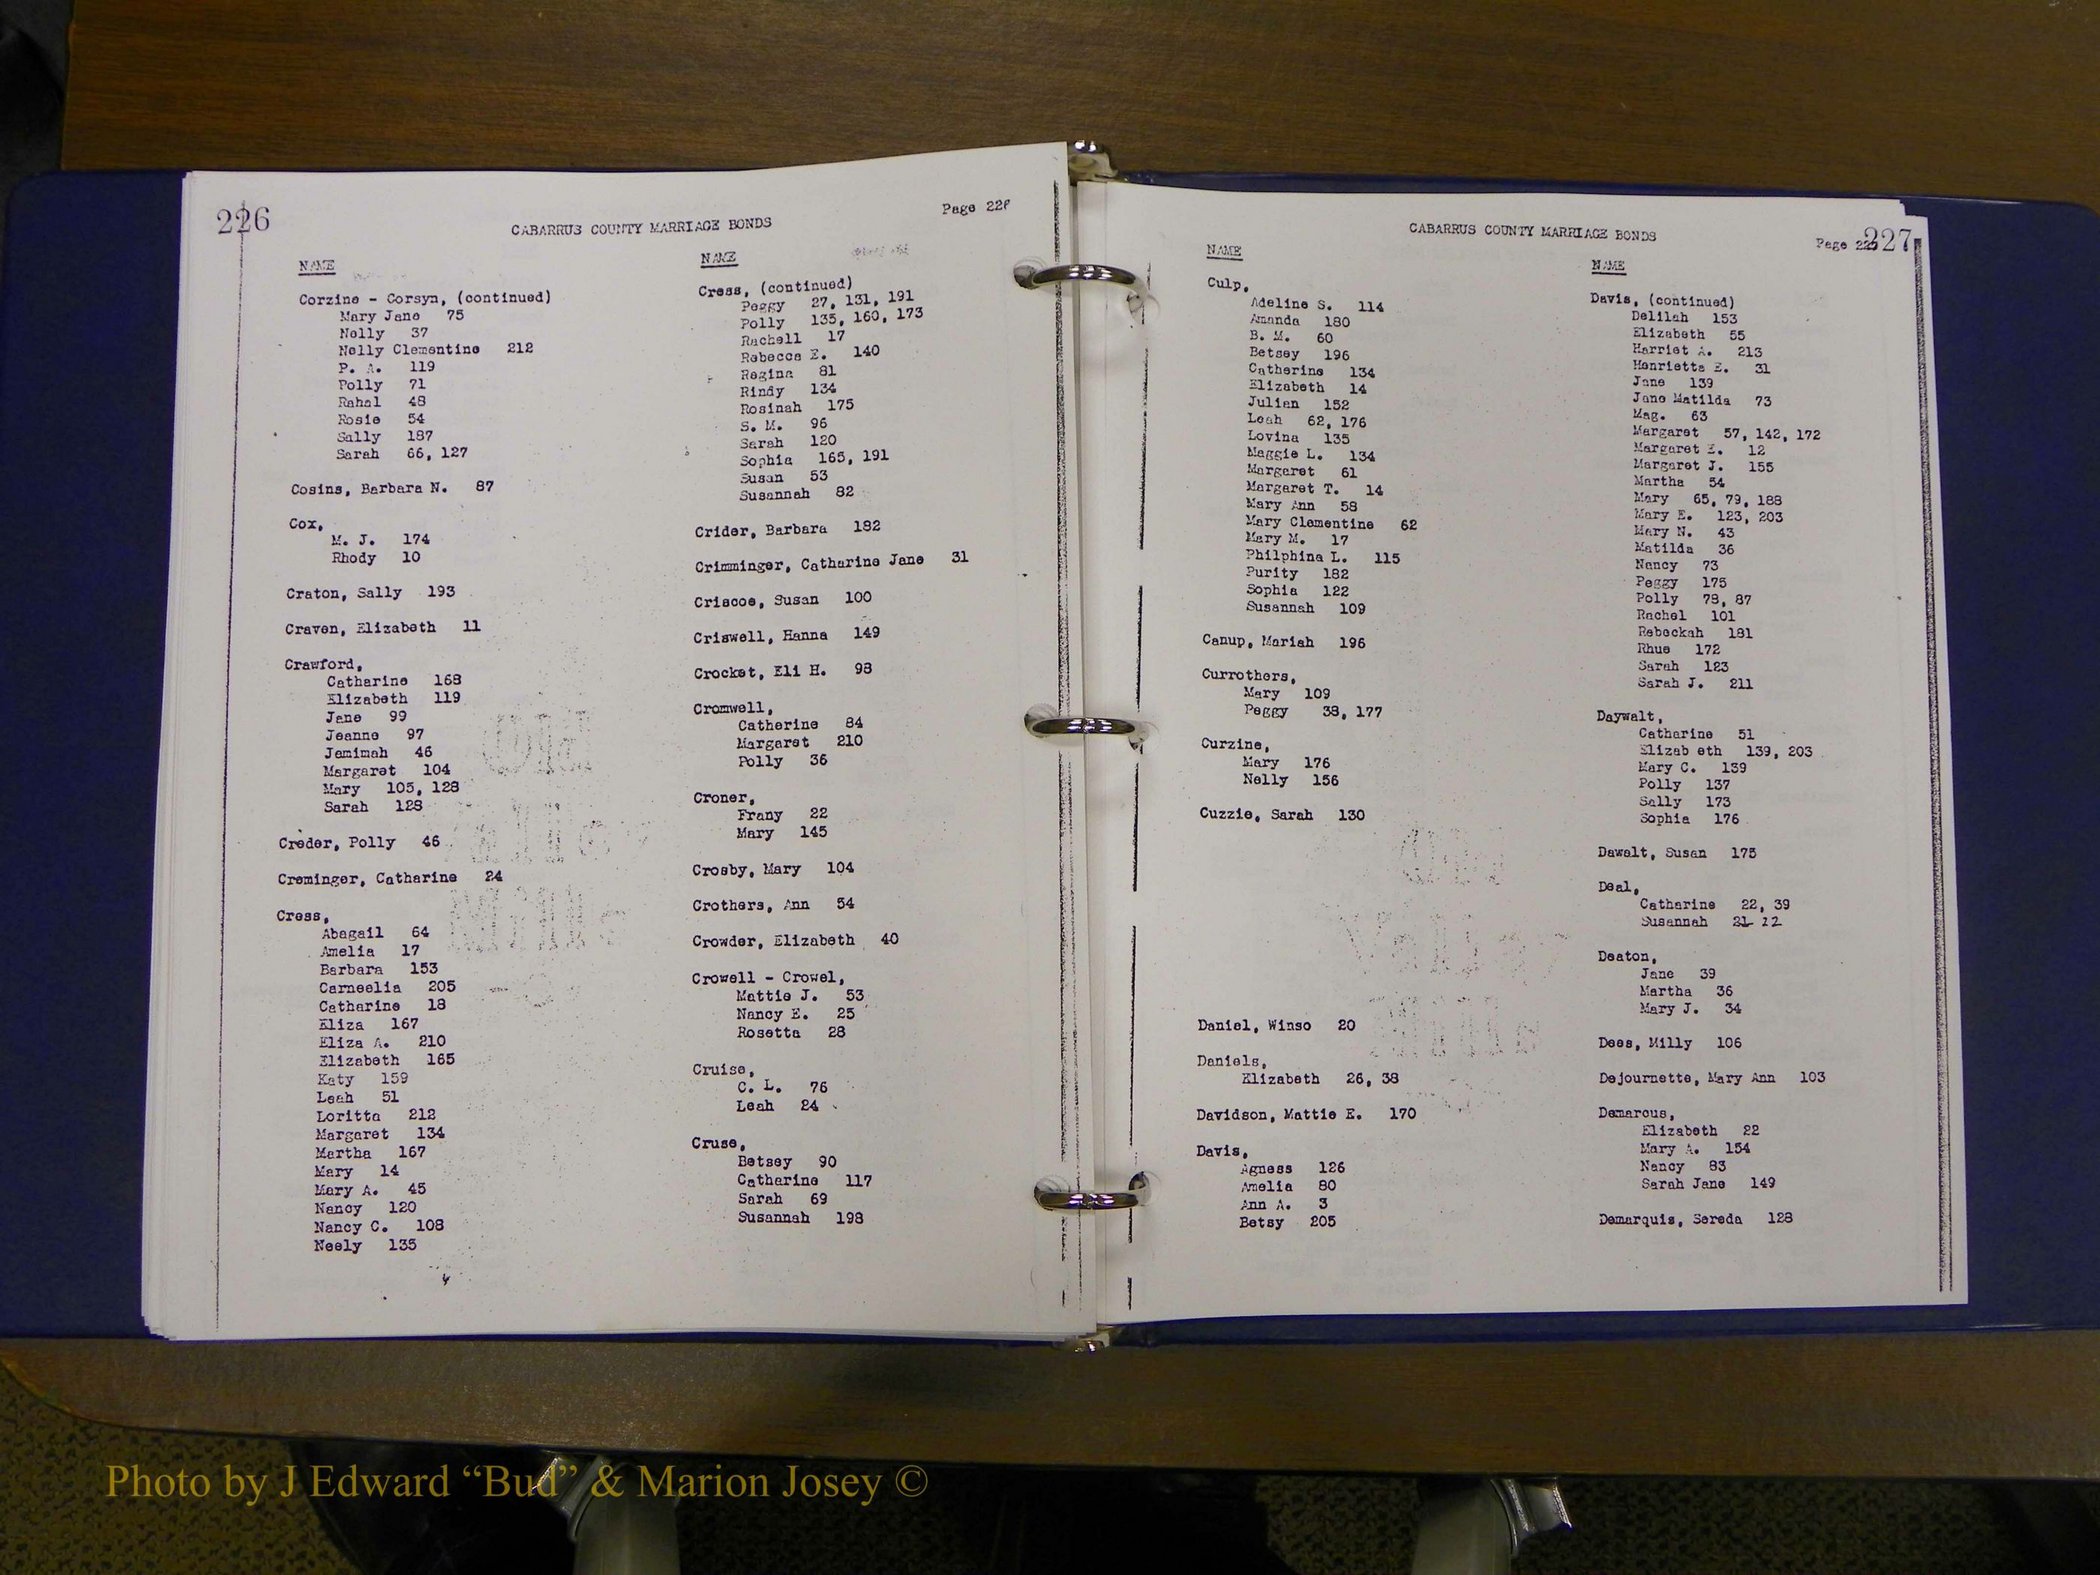 226
CABARRUS COUNTY MARRIAGE BONDS
Page 226
NAME
Corzine - Corsyn, (continued)
Mary Jane 75
Nelly 37
Nelly Clementine 212
P. A. 119
Polly 71
Rahal 48
Rosie 54
Sally 187
Sarah 66, 127
Cosins, Barbara N. 87
Cox,
M. J. 174
Rhody 10
Craton, Sally 193
Craven, Elizabeth 11
Crawford,
Catharine 168
Elizabeth 119
Jane 99
Jeanne 97
Jemimah 46
Margaret 104
Mary 105, 128
Sarah 128
Creder, Polly 46
Creminger, Catharine 24
Cress,
Abagail 64
Amelia 17
Barbara 153
Carneelia 205
Catharine 18
Eliza 167
Eliza A. 210
Elizabeth 165
Katy 159
Leah 51
Loritta 212
Margaret 134
Martha 167
Mary 14
Mary A. 45
Nancy 120
Nancy C. 108
Neely 135
NAME
Cress, (continued)
Peggy 27, 131, 191
Polly 135, 160, 173
Rachell 17
Rebecca E. 140
Regina 81
Rindy 134
Rosinah 175
S. M. 96
Sarah 120
Sophia 165, 191
Susan 53
Susannah 82
Crider, Barbara 182
Crimminger, Catharine Jane 31
Criscoe, Susan 100
Criswell, Hanna 149
Crocket, Eli H. 98
Cromwell,
Catherine 84
Margaret 210
Polly 36
Croner,
Frany 22
Mary 145
Crosby, Mary 104
Crothers, Ann 54
Crowder, Elizabeth 40
Crowell - Crowel,
Mattie J. 53
Nancy E. 25
Rosetta 28
Cruise,
C. L. 76
Leah 24
Cruse,
Betsey 90
Catharine 117
Sarah 69
Susannah 198
CABARRUS COUNTY MARRIAGE BONDS
Page 227
227
NAME
Culp,
Adeline S. 114
Amanda 180
B. M. 60
Betsey 196
Catherine 134
Elizabeth 14
Julien 152
Leah 62, 176
Lovina 135
Maggie L. 134
Margaret 61
Margaret T. 14
Mary Ann 58
Mary Clementine 62
Mary M. 17
Philphina L. 115
Purity 182
Sophia 122
Susannah 109
Canup, Mariah 196
Currothers,
Mary 109
Peggy 38, 177
Curzine,
Mary 176
Nelly 156
Cuzzie, Sarah 130
Daniel, Winso 20
Daniels,
Elizabeth 26, 38
Davidson, Mattie E. 170
Davis,
Agness 126
Amelia 80
Ann A. 3
Betsy 205
NAME
Davis, (continued)
Delilah 153
Elizabeth 55
Harriet A. 213
Henrietta E. 31
Jane 139
Jane Matilda 73
Mag. 63
Margaret 57, 142, 172
Margaret E. 12
Margaret J. 155
Martha 54
Mary 65, 79, 188
Mary E. 123, 203
Mary N. 43
Matilda 36
Nancy 73
Peggy 175
Polly 78, 87
Rachel 101
Rebeckah 181
Rhue 172
Sarah 123
Sarah J. 211
Daywalt,
Catharine 51
Elizab eth 139, 203
Mary C. 139
Polly 137
Sally 173
Sophia 176
Dawalt, Susan 175
Deal,
Catharine 22, 39
Susannah 21 22
Deaton,
Jane 39
Martha 36
Mary J. 34
Dees, Milly 106
Dejournette, Mary Ann 103
Demarcus,
Elizabeth 22
Mary A. 154
Nancy 83
Sarah Jane 149
Demarquis, Sereda 128
Photo by J Edward “Bud” & Marion Josey ©